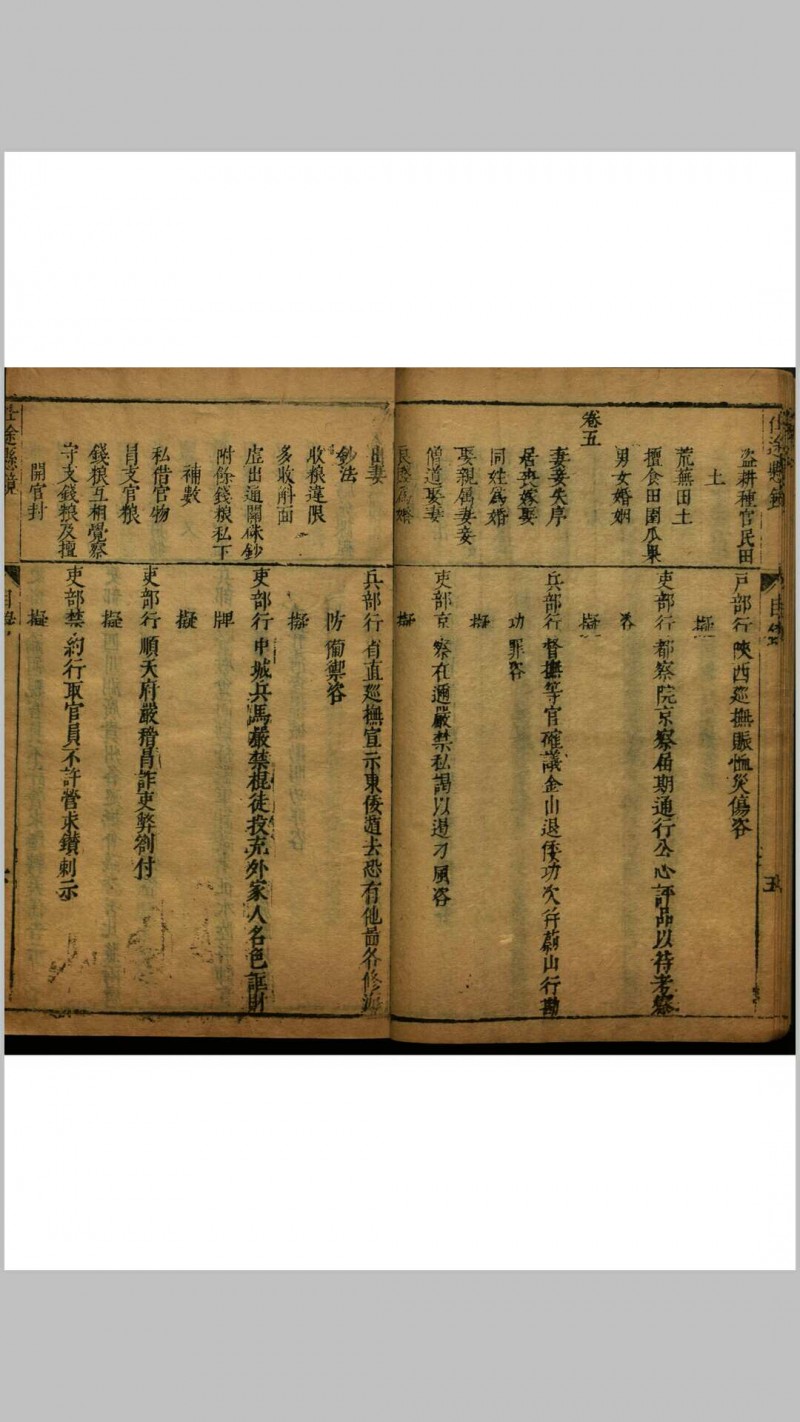 仕途懸鏡
目錄
五
盜耕種官民田
土
荒蕪田土
擅食田園瓜果
男女婚姻
卷五
妻妾失序
居喪嫁娶
同姓為婚
娶親屬妻妾
僧道娶妻
良賤為婚
戶部行陝西巡撫賑恤災傷咨
擬
吏部行都察院京察屆期通行公心評品以待考察
咨
擬
兵部行督撫等官確議金山退倭功次并蔚山行勘
功罪咨
擬
吏部京察在邇嚴禁私謁以遏刁風咨
擬
出妻
鈔法
收粮違限
多收斛面
虛出通關硃鈔
附餘錢粮私下
補數
私借官物
冒支官粮
錢粮互相覺察
守支錢粮及擅
開官封
兵部行省直巡撫宣示東倭遁去恐有他啚各修海
防備禦咨
擬
吏部行中城兵馬嚴禁棍徒投充外家人名色誆財
牌
擬
吏部行順天府嚴稽冒詐吏弊劄付
擬
吏部禁約行取官員不許營求鑽刺示
擬
仕途懸鏡
目錄